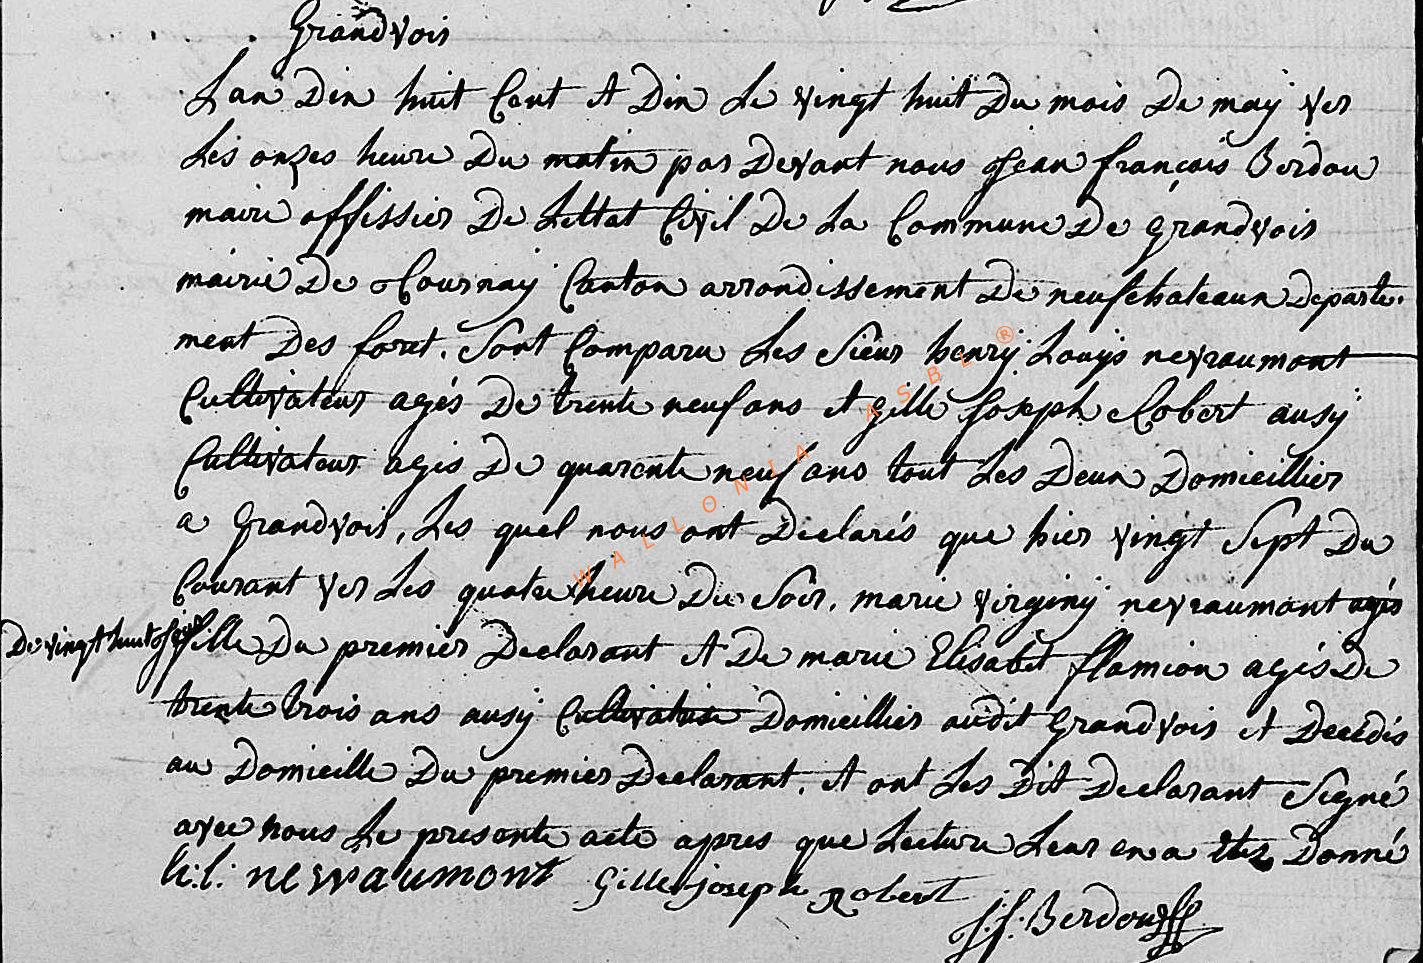 Grandvois
Lan Dix huit Cent et Dix Le vingt huit Du mois De may ver
Les onzes heure Du matin par Devant nous Jean françois Berdou
maire offissier De Lettat Civil De La Commune De Grandvois
mairie De Tournay Canton arrondissement De neufchateaux Departe-
ment Des foret. Sont Comparu Les Sieur henry Louys nevraumont
Cultivateur agés De trente neuf ans et gille Joseph Robert ausy
Cultivateur agés De quarente neuf ans tout Les Deux Domicillier
a Grandvois, Les quel nous ont Declarés que hier vingt Sept Du
Courant ver Les quatre heure Du Soir. marie virginy nevraumont agés
De vingt huit Jour fille Du premier Declarant et De marie Elisabet flamion agés De
trente trois ans ausy Cultivatrise Domicillier audit Grandvois et Decédés
au Domicille Du premier Declarant. et ont Les Dit Declarant Segné
avec nous Le presente acte apres que Lecture Leur en a Donné
h: l: nevraumont Gille joseph Robert
J: f: Berdou
WALLONIA ASBL ®